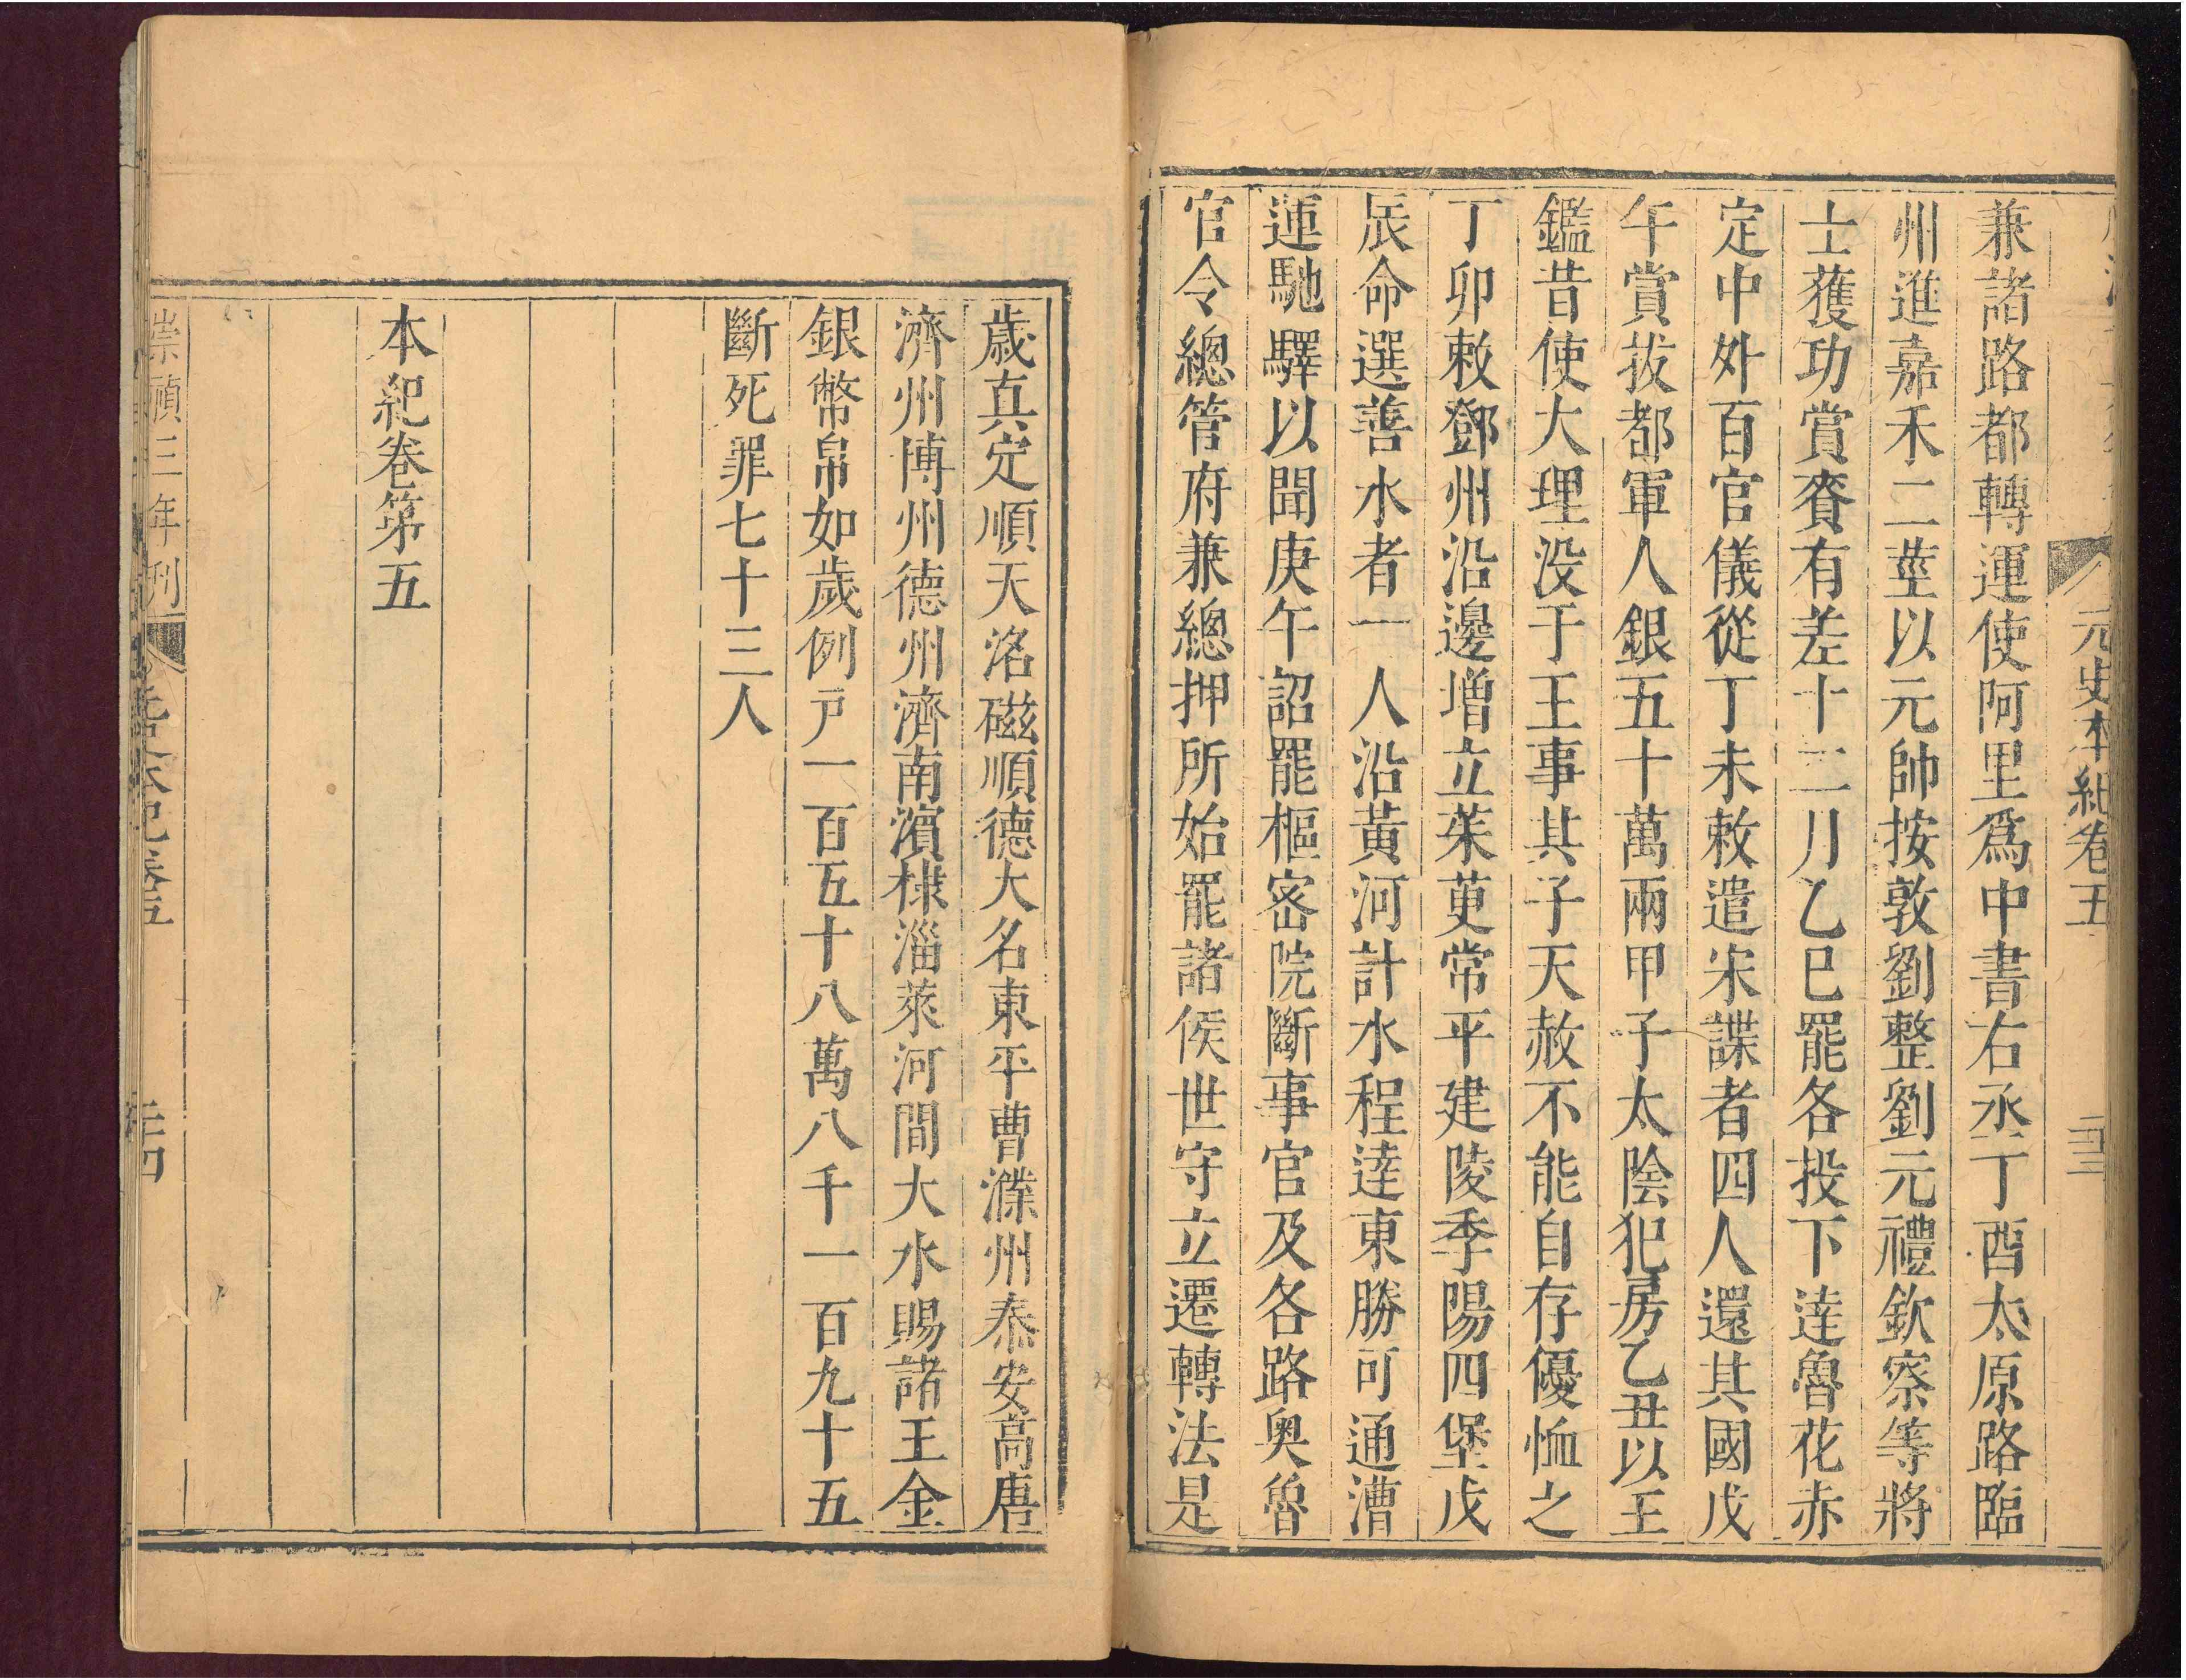 元史本紀卷五
兼諸路都轉運使阿里爲中書右丞丁酉太原路臨
州進嘉禾二莖以元帥按敦劉整劉元禮欽察等將
士獲功賞賚有差十二月乙巳罷各投下逹魯花赤
定中外百官儀從丁未敕遣宋諜者四人還其國戊
午賞拔都軍人銀五十萬兩甲子太陰犯房乙丑以王
鑑昔使大理没于王事其子天赦不能自存優恤之
丁卯敕鄧州沿邊增立茱萸常平建陵季陽四堡戊
辰命選善水者一人沿黃河計水程逹東勝可通漕
運馳驛以聞庚午詔罷樞密院斷事官及各路奥魯
官令總管府兼總押所始罷諸侯世守立遷轉法是
歳真定順天洺磁順德大名東平曹濮州泰安高唐
濟州博州德州濟南濱棣淄萊河間大水賜諸王金
銀幣帛如歲例戸一百五十八萬八千一百九十五
斷死罪七十三人
本紀卷第五
崇禎三年刊